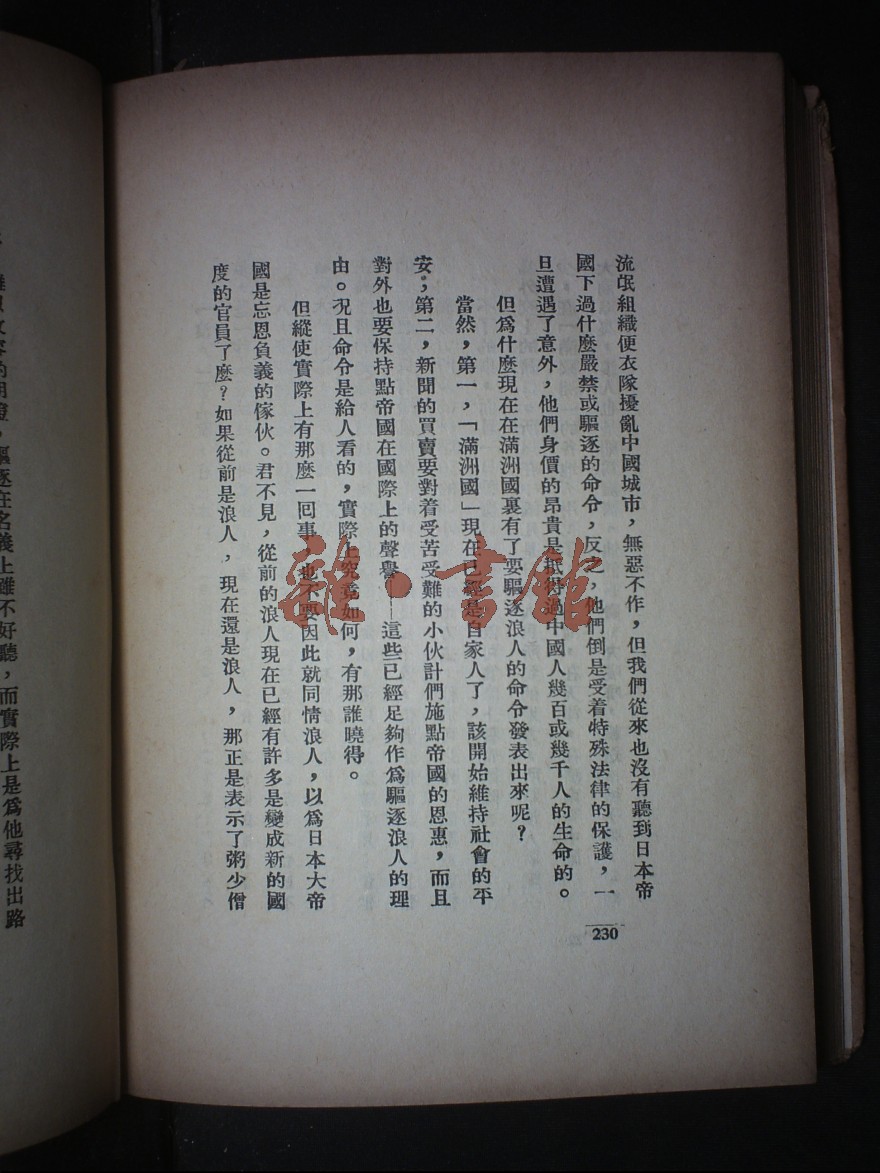 流氓組織便衣隊擾亂中國城市，無惡不作，但我們從來也沒有聽到日本帝
國下過什麼嚴禁或驅逐的命令，反之，他們倒是受着特殊法律的保護，一
旦遭遇了意外，他們身價的昂貴是抵得過中國人幾百或幾千人的生命的。
但爲什麼現在在滿洲國裏有了要驅逐浪人的命令發表出來呢？
當然，第一，「滿洲國」現在已經是自家人了，該開始維持社會的平
安；第二，新聞的買賣要對着受苦受難的小伙計們施點帝國的恩惠，而且
對外也要保持點帝國在國際上的聲譽——這些已經足夠作爲驅逐浪人的理
由。况且命令是給人看的，實際上究竟如何，有那誰曉得。
但縱使實際上有那麼一回事，也不要因此就同情浪人，以爲日本大帝
國是忘恩負義的傢伙。君不見，從前的浪人現在已經有許多是變成新的國
度的官員了麼？如果從前是浪人，現在還是浪人，那正是表示了粥少僧
230
驅逐在名義上雖不好聽，而實際上是爲他尋找出路
雜·書館